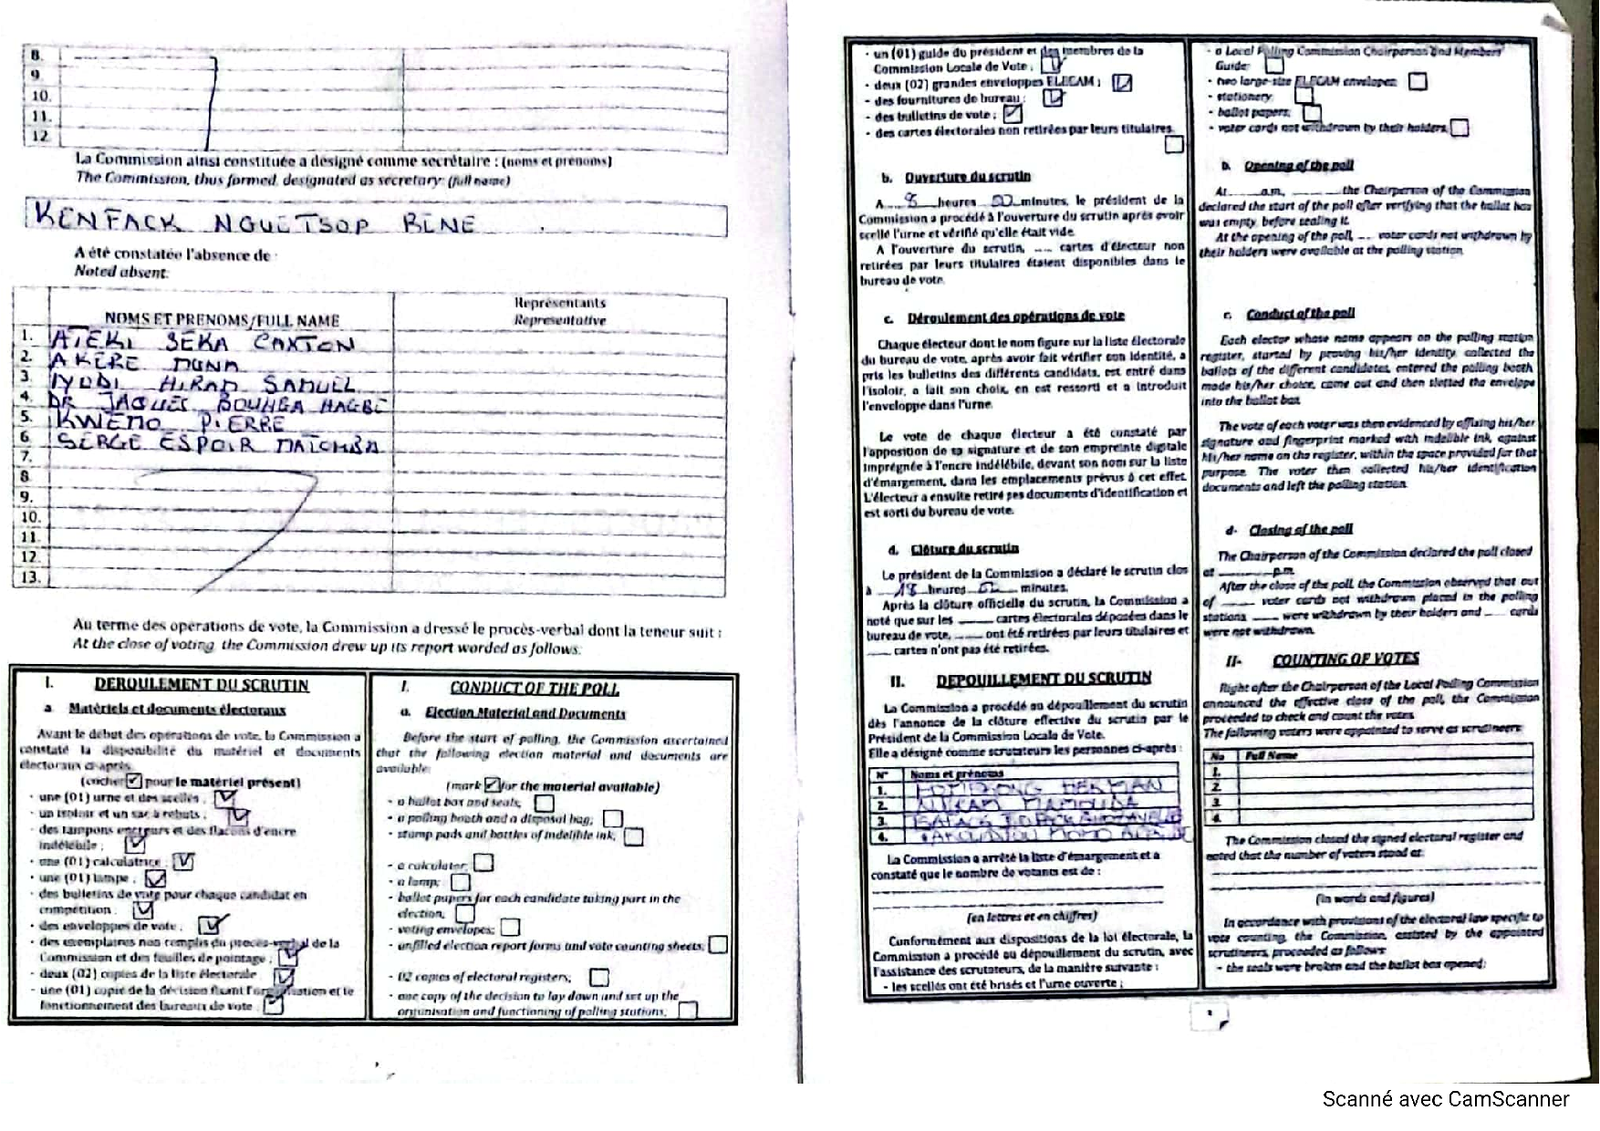 8.
9.
10.
11.
12.
La Commission ainsi constituée a désigné comme secrétaire : (noms et prénoms)
The Commission, thus formed, designated as secretary: (full name)
KENFACK NGUETSOP RENE
A été constatée l'absence de :
Noted absent:
NOMS ET PRENOMS/FULL NAME
Représentants
Representative
1. ATEKI SEKA CAXTON
2. AKERE MUNA
3. IYODI HIRAM SAMUEL
4. DR JAQUES BOUHGA HAGBE
5. KWEMO PIERRE
6. SERGE ESPOIR MATOMBA
7.
8.
9.
10.
11.
12.
13.
Au terme des opérations de vote, la Commission a dressé le procès-verbal dont la teneur suit :
At the close of voting, the Commission drew up its report worded as follows:
I. DEROULEMENT DU SCRUTIN
a Matériels et documents électoraux
Avant le début des opérations de vote, la Commission a
constaté la disponibilité du matériel et documents
électoraux ci-après.
(cocher pour le matériel présent)
- une (01) urne et des scellés ;
- un isoloir et un sac à rebuts ;
- des tampons encreurs et des flacons d'encre
indélébile ;
- une (01) calculatrice ;
- une (01) lampe ;
- des bulletins de vote pour chaque candidat en
compétition ;
- des enveloppes de vote ;
- des exemplaires non remplis du procès-verbal de la
Commission et des feuilles de pointage ;
- deux (02) copies de la liste électorale
- une (01) copie de la décision fixant l'organisation et le
fonctionnement des bureaux de vote ;
I. CONDUCT OF THE POLL
a. Election Material and Documents
Before the start of polling, the Commission ascertained
that the following election material and documents are
available:
(mark for the material available)
- a ballot box and seals;
- a polling booth and a disposal bag;
- stamp pads and bottles of indelible ink;
- a calculator;
- a lamp;
- ballot papers for each candidate taking part in the
election;
- voting envelopes;
- unfilled election report forms and vote counting sheets;
- 02 copies of electoral registers;
- one copy of the decision to lay down and set up the
organisation and functioning of polling stations;
- un (01) guide du président et des membres de la
Commission Locale de Vote ;
- deux (02) grandes enveloppes ELECAM ;
- des fournitures de bureau ;
- des bulletins de vote ;
- des cartes électorales non retirées par leurs titulaires.
b. Ouverture du scrutin
A 8 heures 00 minutes, le président de la
Commission a procédé à l'ouverture du scrutin après avoir
scellé l'urne et vérifié qu'elle était vide.
A l'ouverture du scrutin, .... cartes d'électeur non
retirées par leurs titulaires étaient disponibles dans le
bureau de vote.
c. Déroulement des opérations de vote
Chaque électeur dont le nom figure sur la liste électorale
du bureau de vote, après avoir fait vérifier son identité, a
pris les bulletins des différents candidats, est entré dans
l'isoloir, a fait son choix, en est ressorti et a introduit
l'enveloppe dans l'urne.
Le vote de chaque électeur a été constaté par
l'apposition de sa signature et de son empreinte digitale
imprégnée à l'encre indélébile, devant son nom sur la liste
d'émargement, dans les emplacements prévus à cet effet.
L'électeur a ensuite retiré ses documents d'identification et
est sorti du bureau de vote.
d. Clôture du scrutin
Le président de la Commission a déclaré le scrutin clos
à 18 heures minutes.
Après la clôture officielle du scrutin, la Commission a
noté que sur les ______ cartes électorales déposées dans le
bureau de vote, ____ ont été retirées par leurs titulaires et
____ cartes n'ont pas été retirées.
II. DEPOUILLEMENT DU SCRUTIN
La Commission a procédé au dépouillement du scrutin
dès l'annonce de la clôture effective du scrutin par le
Président de la Commission Locale de Vote.
Elle a désigné comme scrutateurs les personnes ci-après :
N° Noms et prénoms
1. HERMAN
2.
3.
4.
La Commission a arrêté la liste d'émargement et a
constaté que le nombre de votants est de :
(en lettres et en chiffres)
Conformément aux dispositions de la loi électorale, la
Commission a procédé au dépouillement du scrutin, avec
l'assistance des scrutateurs, de la manière suivante :
- les scellés ont été brisés et l'urne ouverte ;
- a Local Polling Commission Chairperson and Members'
Guide;
- two large-size ELECAM envelopes;
- stationery;
- ballot papers;
- voter cards not withdrawn by their holders;
b. Opening of the poll
At ______ a.m, ______ the Chairperson of the Commission
declared the start of the poll after verifying that the ballot box
was empty, before sealing it.
At the opening of the poll, ... voter cards not withdrawn by
their holders were available at the polling station.
c. Conduct of the poll
Each elector whose name appears on the polling station
register, started by proving his/her identity, collected the
ballots of the different candidates, entered the polling booth
made his/her choice, came out and then slotted the envelope
into the ballot box.
The vote of each voter was then evidenced by affixing his/her
signature and fingerprint marked with indelible ink, against
his/her name on the register, within the space provided for that
purpose. The voter then collected his/her identification
documents and left the polling station.
d- Closing of the poll
The Chairperson of the Commission declared the poll closed
at ________ p.m.
After the close of the poll, the Commission observed that out
of _____ voter cards not withdrawn placed in the polling
stations ____ were withdrawn by their holders and ____ cards
were not withdrawn.
II- COUNTING OF VOTES
Right after the Chairperson of the Local Polling Commission
announced the effective close of the poll, the Commission
proceeded to check and count the votes.
The following voters were appointed to serve as scrutineers:
No Full Name
1.
2.
3.
4.
The Commission closed the signed electoral register and
noted that the number of voters stood at:
(in words and figures)
In accordance with provisions of the electoral law specific to
vote counting, the Commission, assisted by the appointed
scrutineers, proceeded as follows:
- the seals were broken and the ballot box opened;
Scanné avec CamScanner